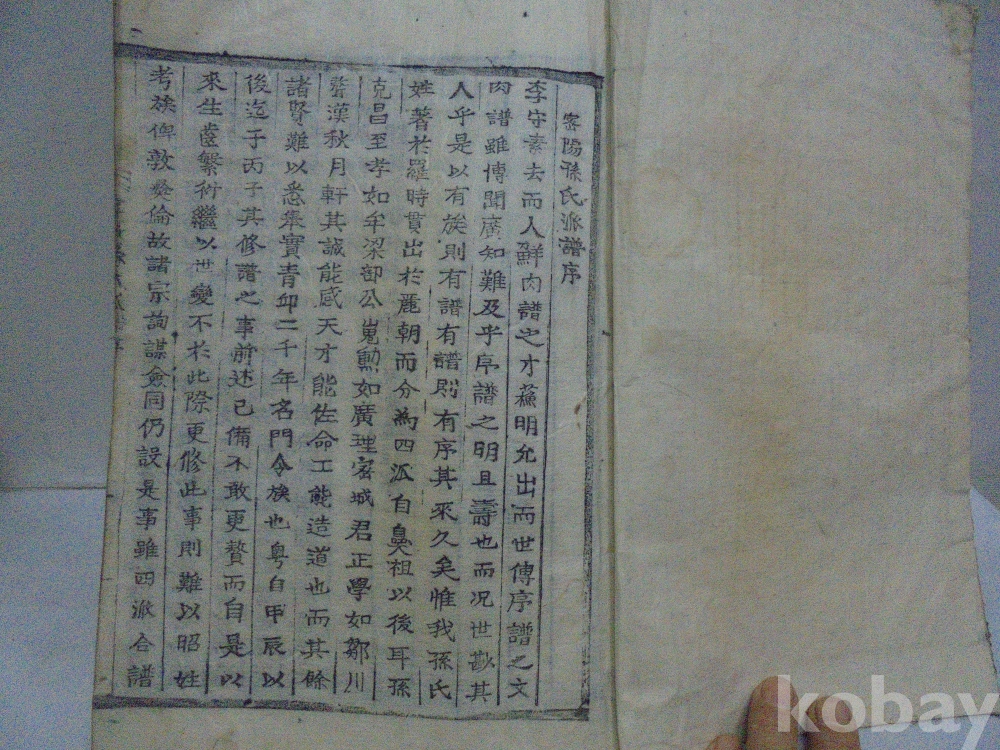 密陽孫氏派譜序
李守素去而人鮮肉譜之才蘇明允出而世傳序譜之文
肉譜雖傳聞廣知難及乎序譜之明且壽也而况世歡其
人乎是以有族則有譜有譜則有序其來久矣惟我孫氏
姓著於羅時貫出於麗朝而分為四派自鼻祖以後耳孫
克昌至孝如牟梁部公嵬勲如廣理密城君正學如鄒川
齋漢秋月軒其誠能感天才能佐命工能造道也而其餘
諸賢難以悉集實青邱二千年名門令族也粤自甲辰以
後迄于丙子其修譜之事前述已備不敢更贅而自是以
來生齒繁衍繼以世變不於此際更修此事則難以昭姓
考族俾敦彛倫故諸宗詢謀僉同仍設是事雖四派合譜
kobay